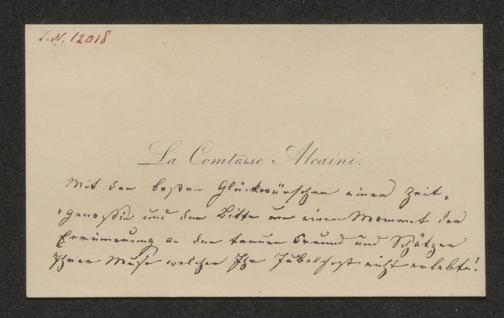 I.N. 12018
La Comtesse Alcaini.
Mit den besten Glückwünschen einer Zeit-
genossin und der Bitte um einen Moment der
Erinnerung an den treuen Freund und Schätzer
Ihrer Muse welcher Ihr Jubelfest nicht erlebte!